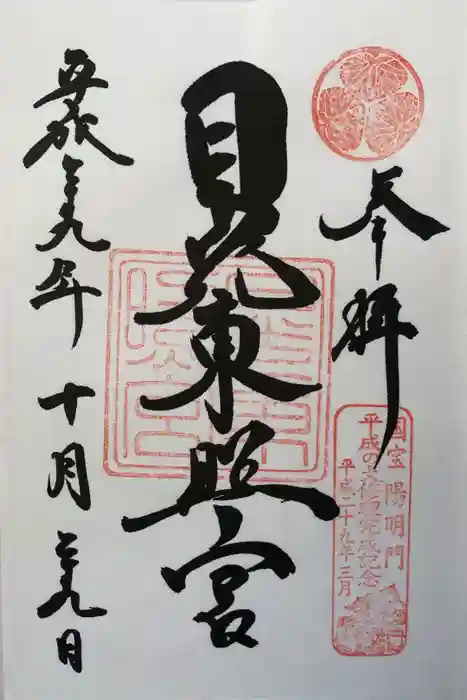 奉拝
国宝 陽明門
平成の大修理完成記念
平成二十九年三月
日光東照宮
平成二十九年十月二十九日